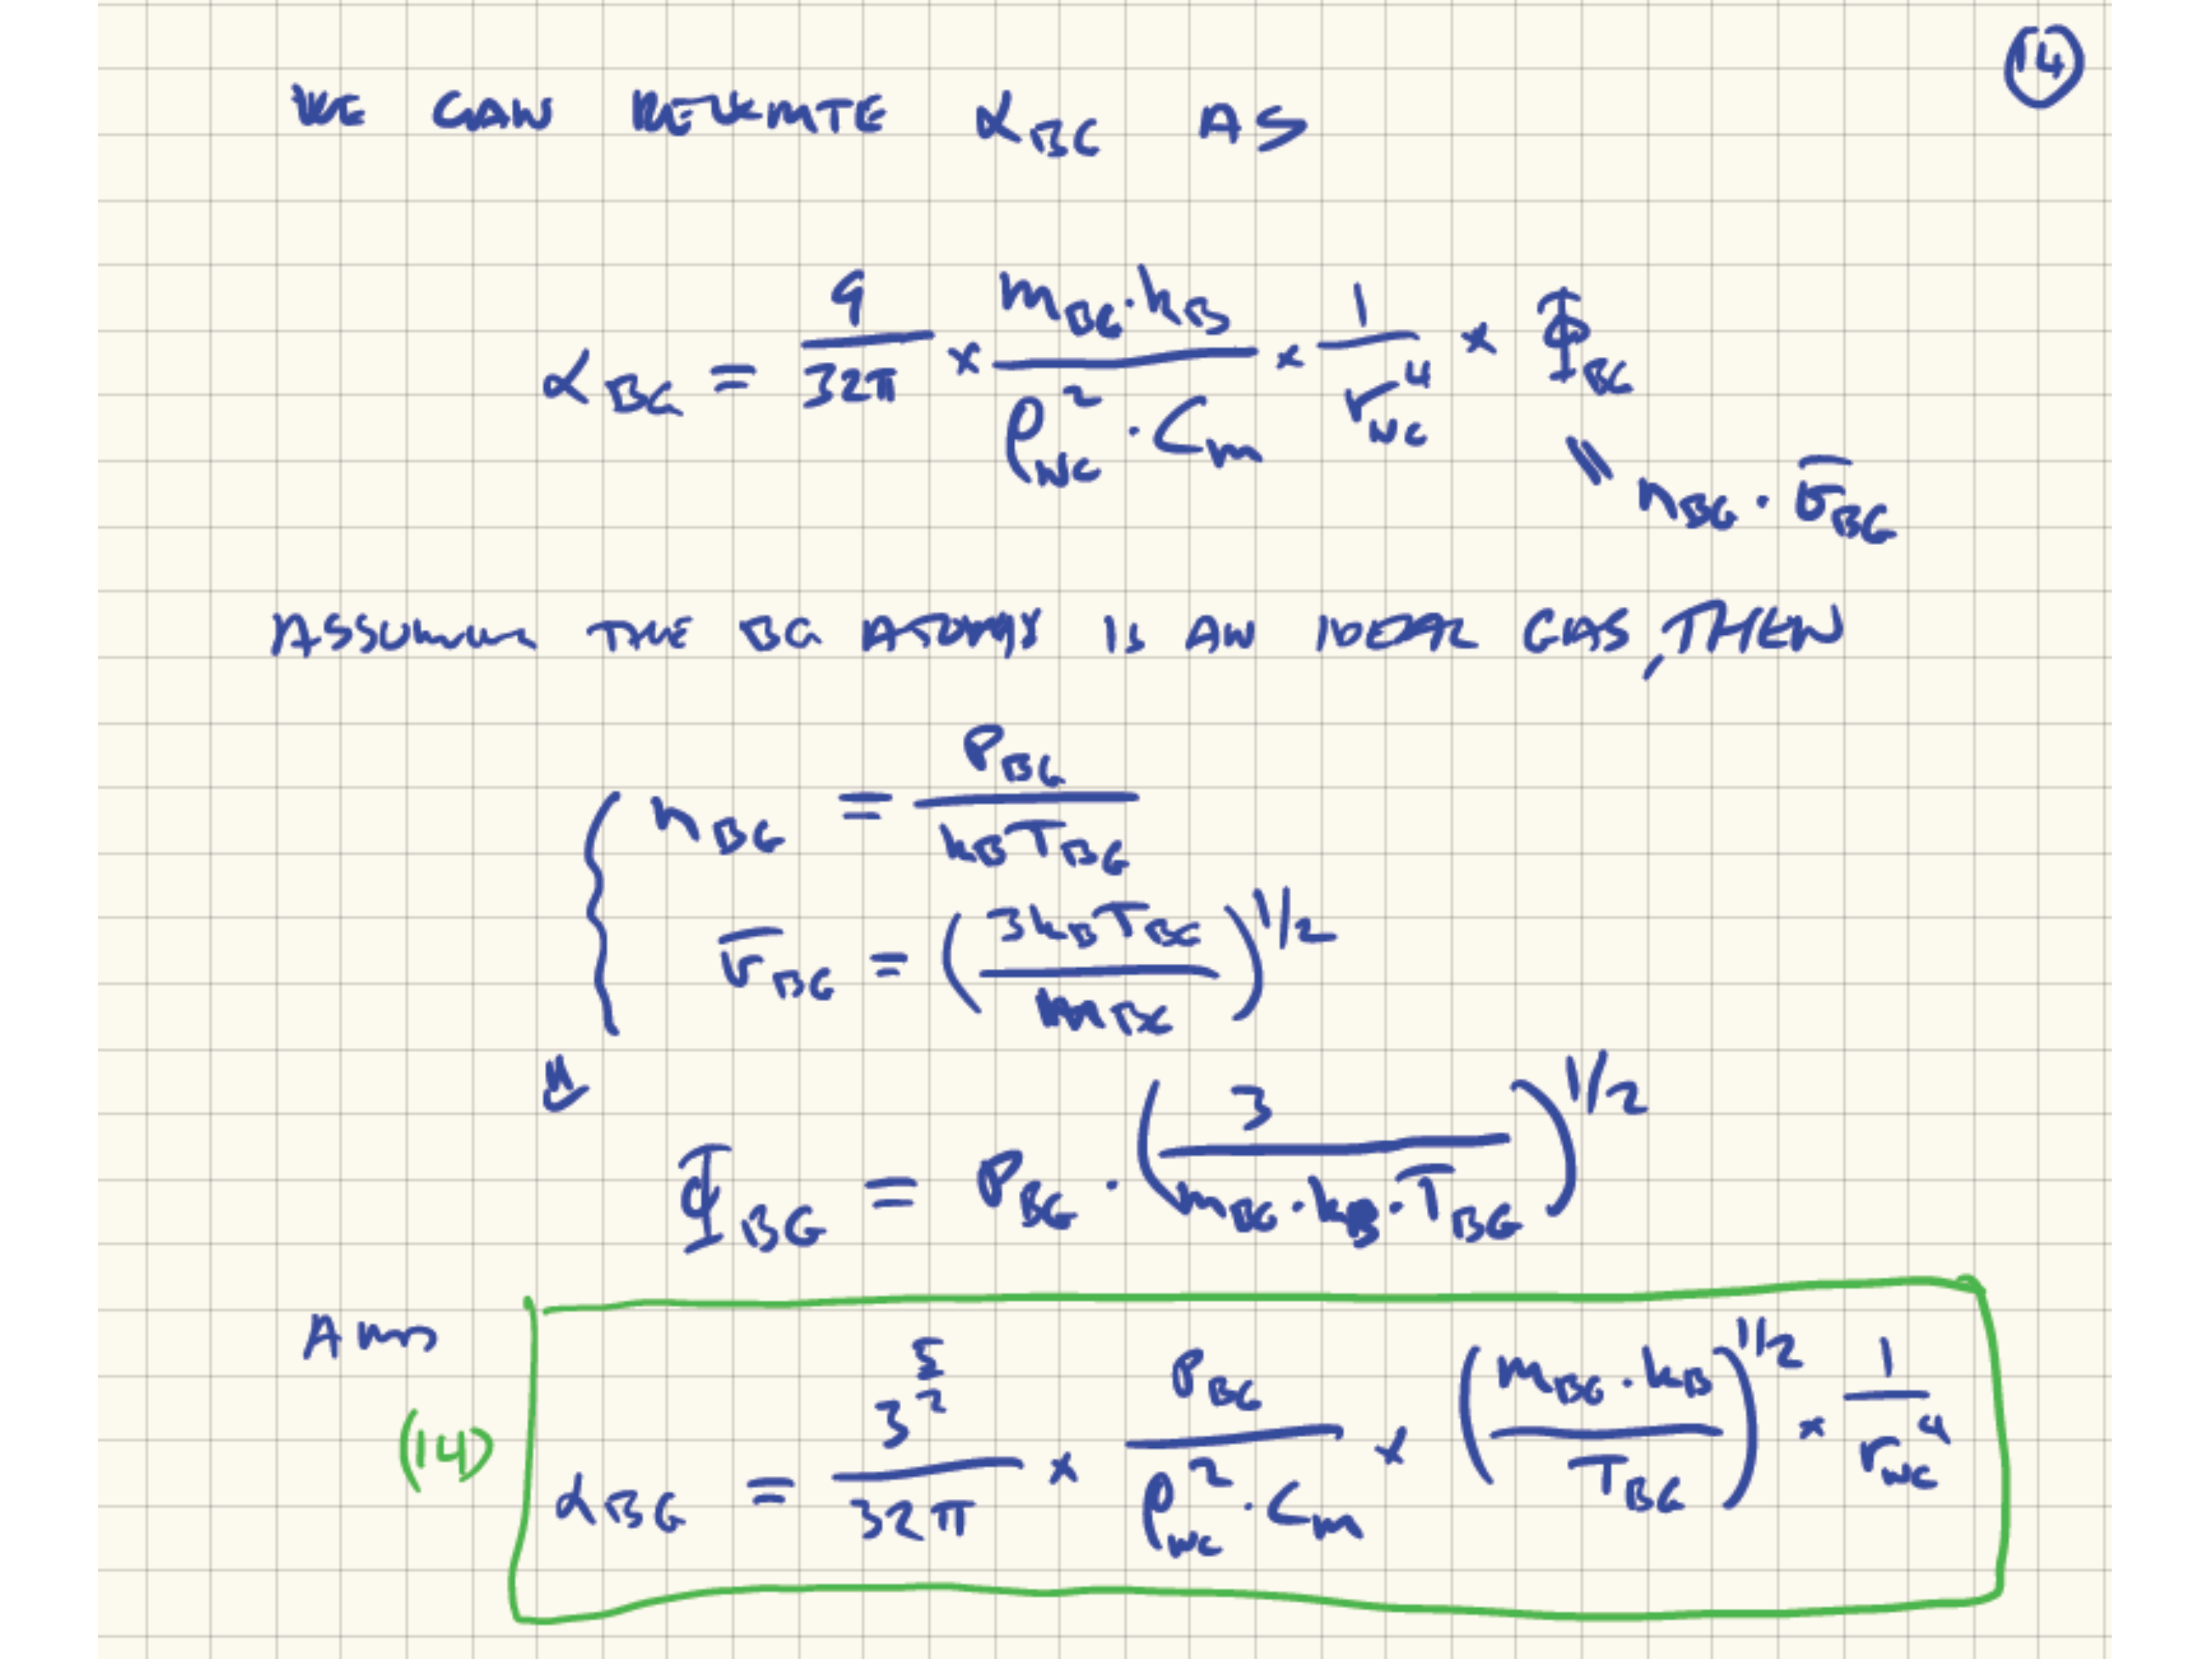 14
WE CAN REWRITE α_BG AS
α_BG = 9/32π × (m_BG · k_B)/(ρ_NC² · C_m) × 1/r_NC⁴ × Φ_BG
= n_BG · v̄_BG
ASSUMING THE BG ATOMS IS AN IDEAL GAS, THEN
n_BG = P_BG/(k_B T_BG)
v̄_BG = (3k_B T_BG/m_BG)^1/2
⇓
Φ_BG = P_BG · (3/(m_BG · k_B · T_BG))^1/2
AND
(14) α_BG = 3^(5/2)/32π × P_BG/(ρ_NC² · C_m) × ((m_BG · k_B)/T_BG)^1/2 × 1/r_NC⁴